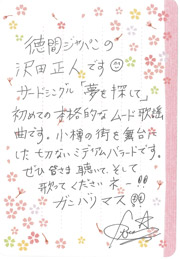 徳間ジャパンの
沢田正人です
サードシングル「夢を探して」
初めての本格的なムード歌謡
曲です。小樽の街を舞台に
した切ないミディアムバラードです。
ぜひ皆さま聴いて、そして
歌ってくださいネー!!
ガンバリマス